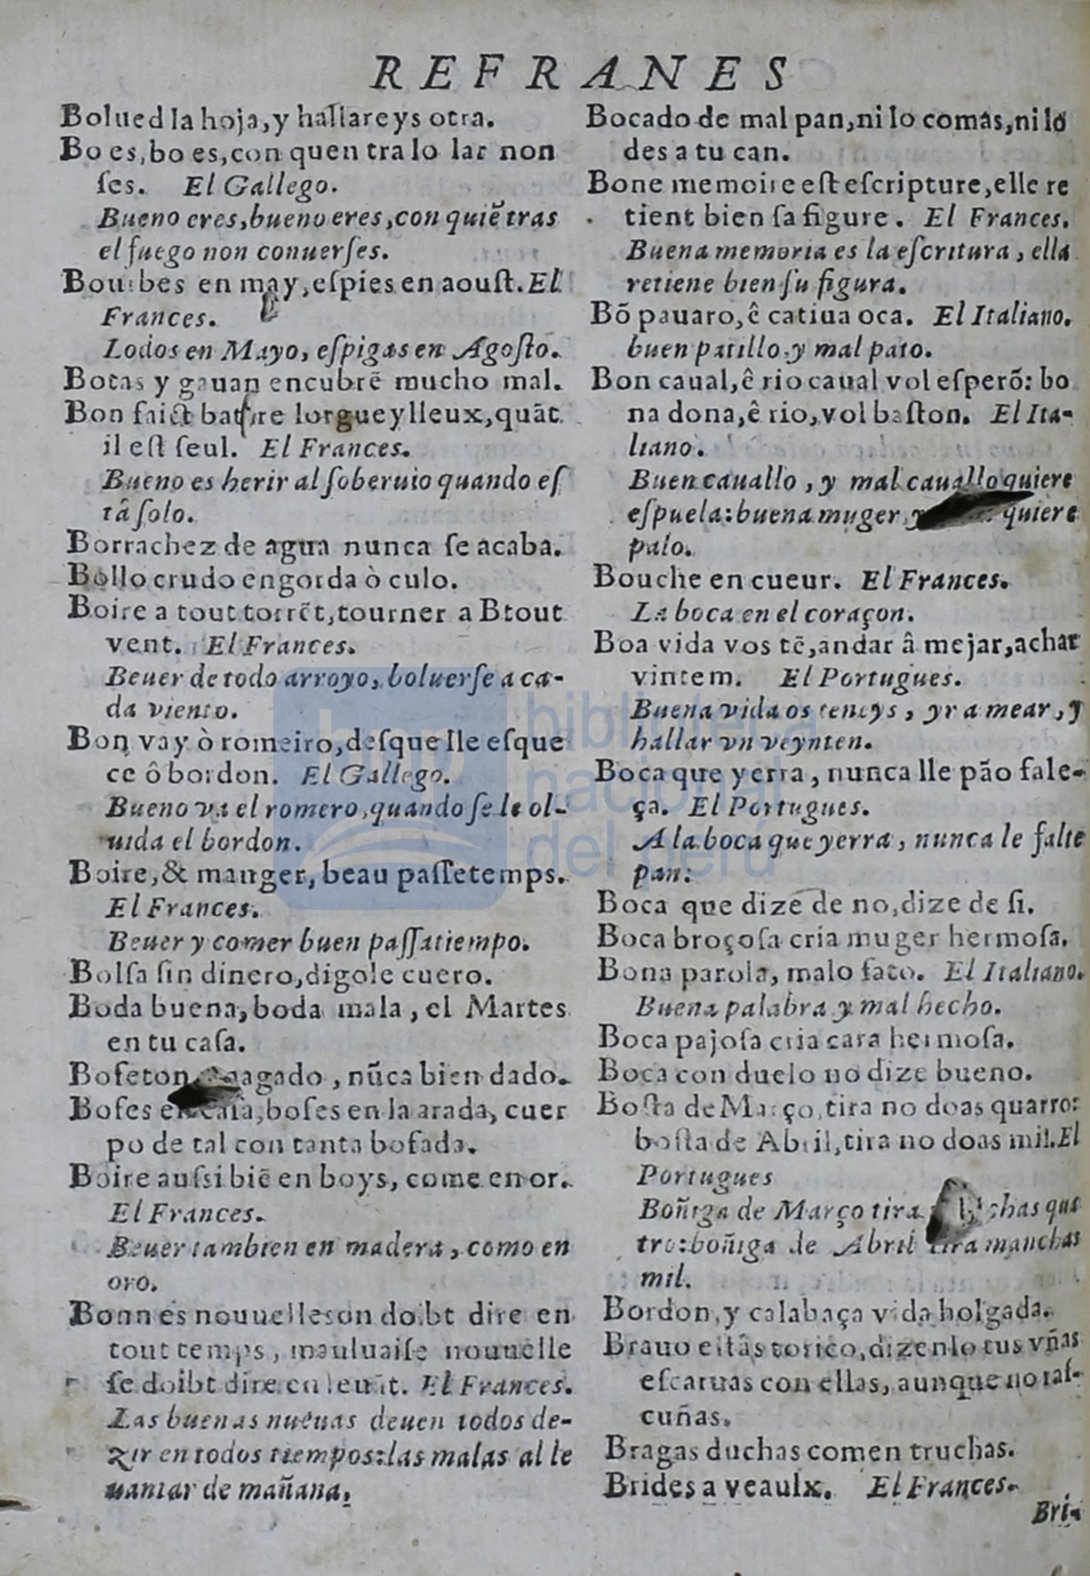 REFRANES
Bolued la hoja, y hallareys otra.
Bo es, bo es, con quen tra lo lar non
ſes. El Gallego.
Bueno eres, bueno eres, con quiẽ tras
el fuego non conuerſes.
Bourbes en may, eſpies en aouſt. El
Frances.
Lodos en Mayo, eſpigas en Agoſto.
Botas y gauan encubrẽ mucho mal.
Bon faict batre lorgueylleux, quãt
il eſt ſeul. El Frances.
Bueno es herir al ſoberuio quando eſ
tâ ſolo.
Borrachez de agua nunca ſe acaba.
Bollo crudo engorda ò culo.
Boire a tout torrẽt, tourner a Btout
vent. El Frances.
Beuer de todo arroyo, boluerſe a ca-
da viento.
Bon vay ò romeiro, deſque lle eſque
ce ô bordon. El Gallego.
Bueno va el romero, quando ſe le ol-
uida el bordon.
Boire, & manger, beau paſſetemps.
El Frances.
Beuer y comer buen paſſatiempo.
Bolſa ſin dinero, digole cuero.
Boda buena, boda mala, el Martes
en tu caſa.
Bofeton agado, nũca bien dado.
Bofes en caſa, bofes en la arada, cuer
po de tal con tanta bofada.
Boire auſsi biẽ en boys, come en or.
El Frances.
Beuer tambien en madera, como en
oro.
Bonnes nouuelles on doibt dire en
tout temps, mauluaiſe nouuelle
ſe doibt dire en leuãt. El Frances.
Las buenas nueuas deuen todos de-
zir en todos tiempos: las malas al le
uantar de mañana.
Bocado de mal pan, ni lo comas, ni lo
des a tu can.
Bone memoire eſt eſcripture, elle re
tient bien ſa figure. El Frances.
Buena memoria es la eſcritura, ella
retiene bien ſu figura.
Bõ pauaro, ê catiua oca. El Italiano.
buen patillo, y mal pato.
Bon caual, ê rio caual vol eſperõ: bo
na dona, ê rio, vol baſton. El Ita-
liano.
Buen cauallo, y mal cauallo quiere
eſpuela: buena muger, y quiere
palo.
Bouche en cueur. El Frances.
La boca en el coraçon.
Boa vida vos tẽ, andar â mejar, achar
vintem. El Portugues.
Buena vida os teneys, yr a mear, y
hallar vn veynten.
Boca que yerra, nunca lle pão fale-
ça. El Portugues.
A la boca que yerra, nunca le falte
pan:
Boca que dize de no, dize de ſi.
Boca broçoſa cria muger hermoſa.
Bona parola, malo fato. El Italiano.
Buena palabra y mal hecho.
Boca pajoſa cria cara hermoſa.
Boca con duelo no dize bueno.
Boſta de Março, tira no doas quatro:
boſta de Abril, tira no doas mil. El
Portugues
Boñiga de Março tira chas qua
tro: boñiga de Abril tira manchas
mil.
Bordon, y calabaça vida holgada.
Brauo eſtâs torico, dizenlo tus vñas
eſcaruas con ellas, aunque no raſ-
cuñas.
Bragas duchas comen truchas.
Brides a veaulx. El Frances.
Bri-
biblioteca
nacional
del perú